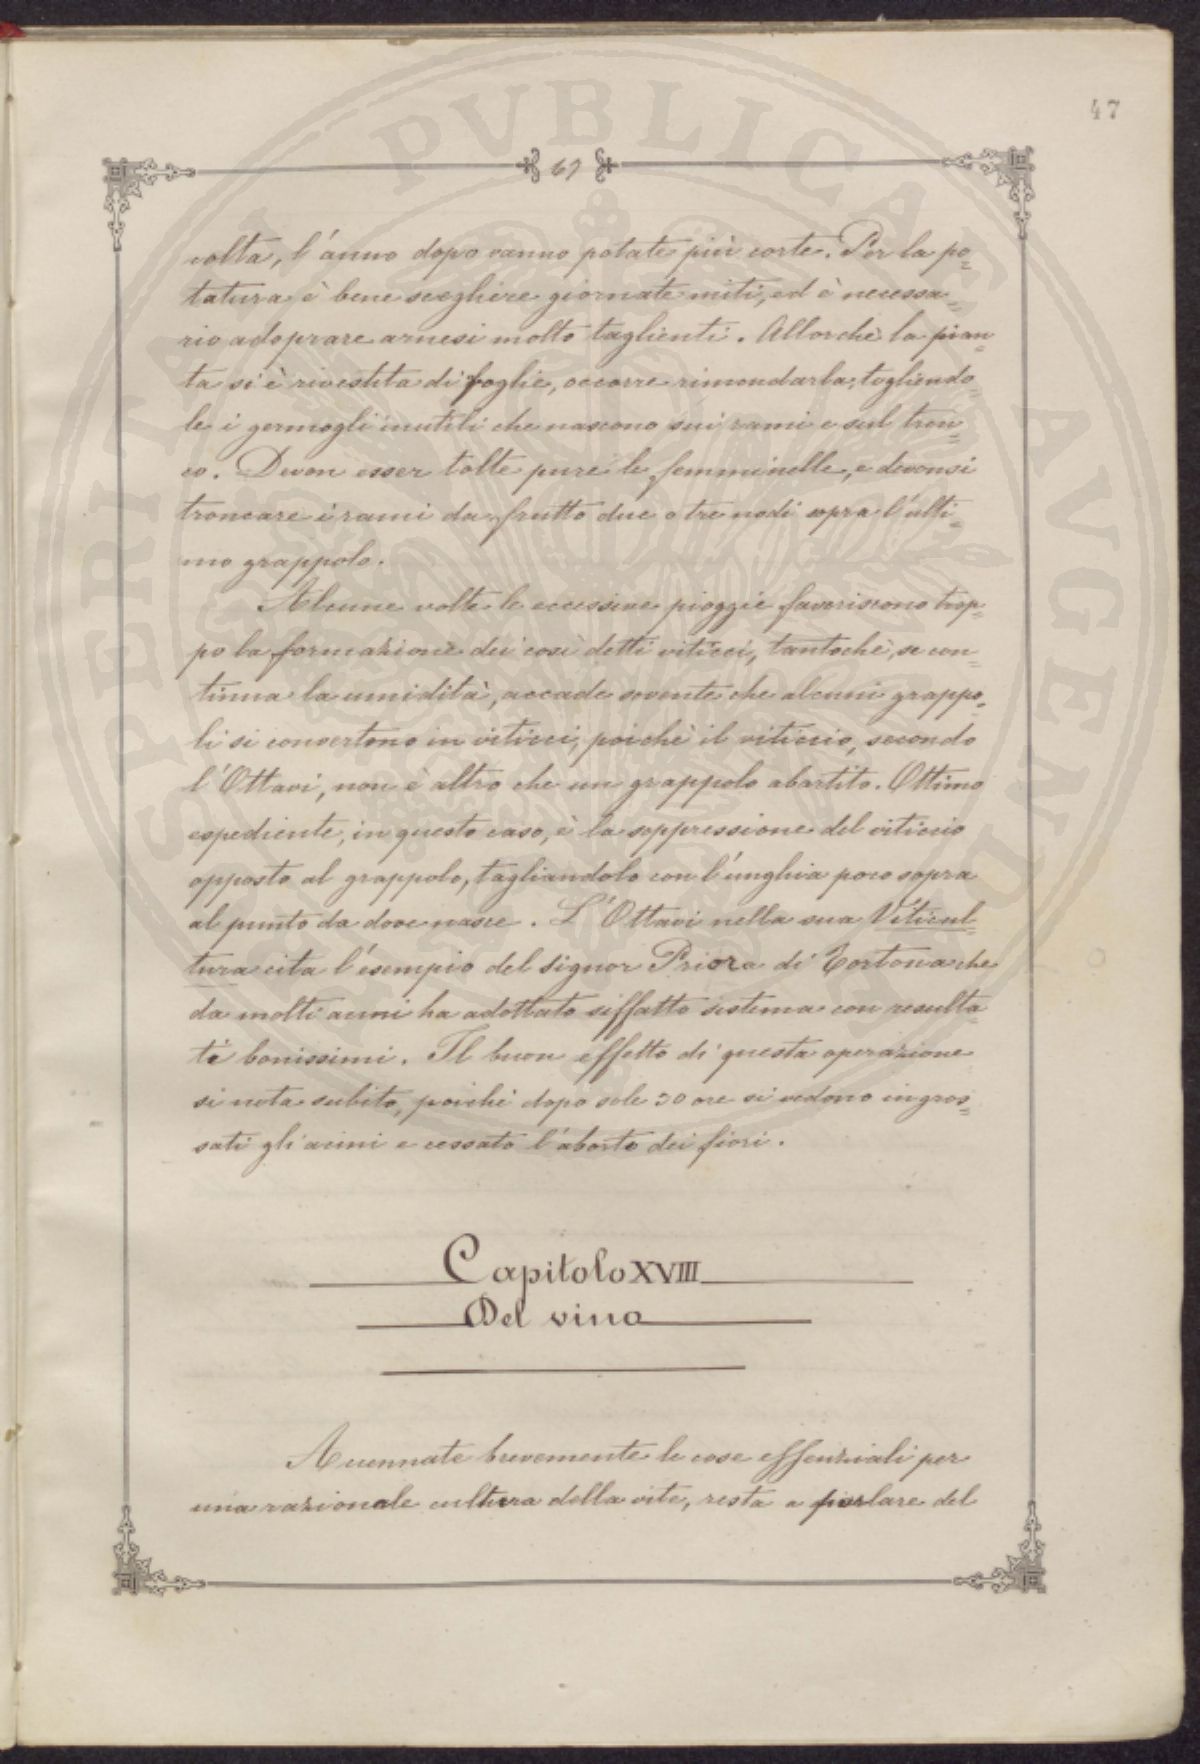 47
67
volta, l'anno dopo vanno potate più corte. Per la po=
tatura è bene scegliere giornate miti, ed è necessa=
rio adoprare arnesi molto taglienti. Allorchè la pian=
ta si è rivestita di foglie, occorre rimondarla, togliendo=
le i germogli inutili che nascono sui rami e sul tron=
co. Devon esser tolte pure le femminelle, e devonsi
troncare i rami da frutto due o tre nodi sopra l'ulti=
mo grappolo.
Alcune volte le eccessive pioggie favoriscono trop=
po la formazione dei così detti viticci, tantochè, se con=
tinua la umidità, accade sovente che alcuni grappo=
li si convertono in viticci, poichè il viticcio, secondo
l'Ottavi, non è altro che un grappolo abortito. Ottimo
espediente, in questo caso, è la soppressione del viticcio
opposto al grappolo, tagliandolo con l'unghia poco sopra
al punto da dove nasce. L'Ottavi nella sua Viticul=
tura cita l'esempio del signor Priora di Tortona che
da molti anni ha adottato siffatto sistema con resulta=
ti bonissimi. Il buon effetto di questa operazione
si nota subito, poichè dopo sole 30 ore si vedono ingros=
sati gli acini e cessato l'aborto dei fiori.
Capitolo XVIII
Del vino
Accennate brevemente le cose essenziali per
una razionale cultura della vite, resta a parlare del
SPERITAT PVBLICAE AVGENDAE